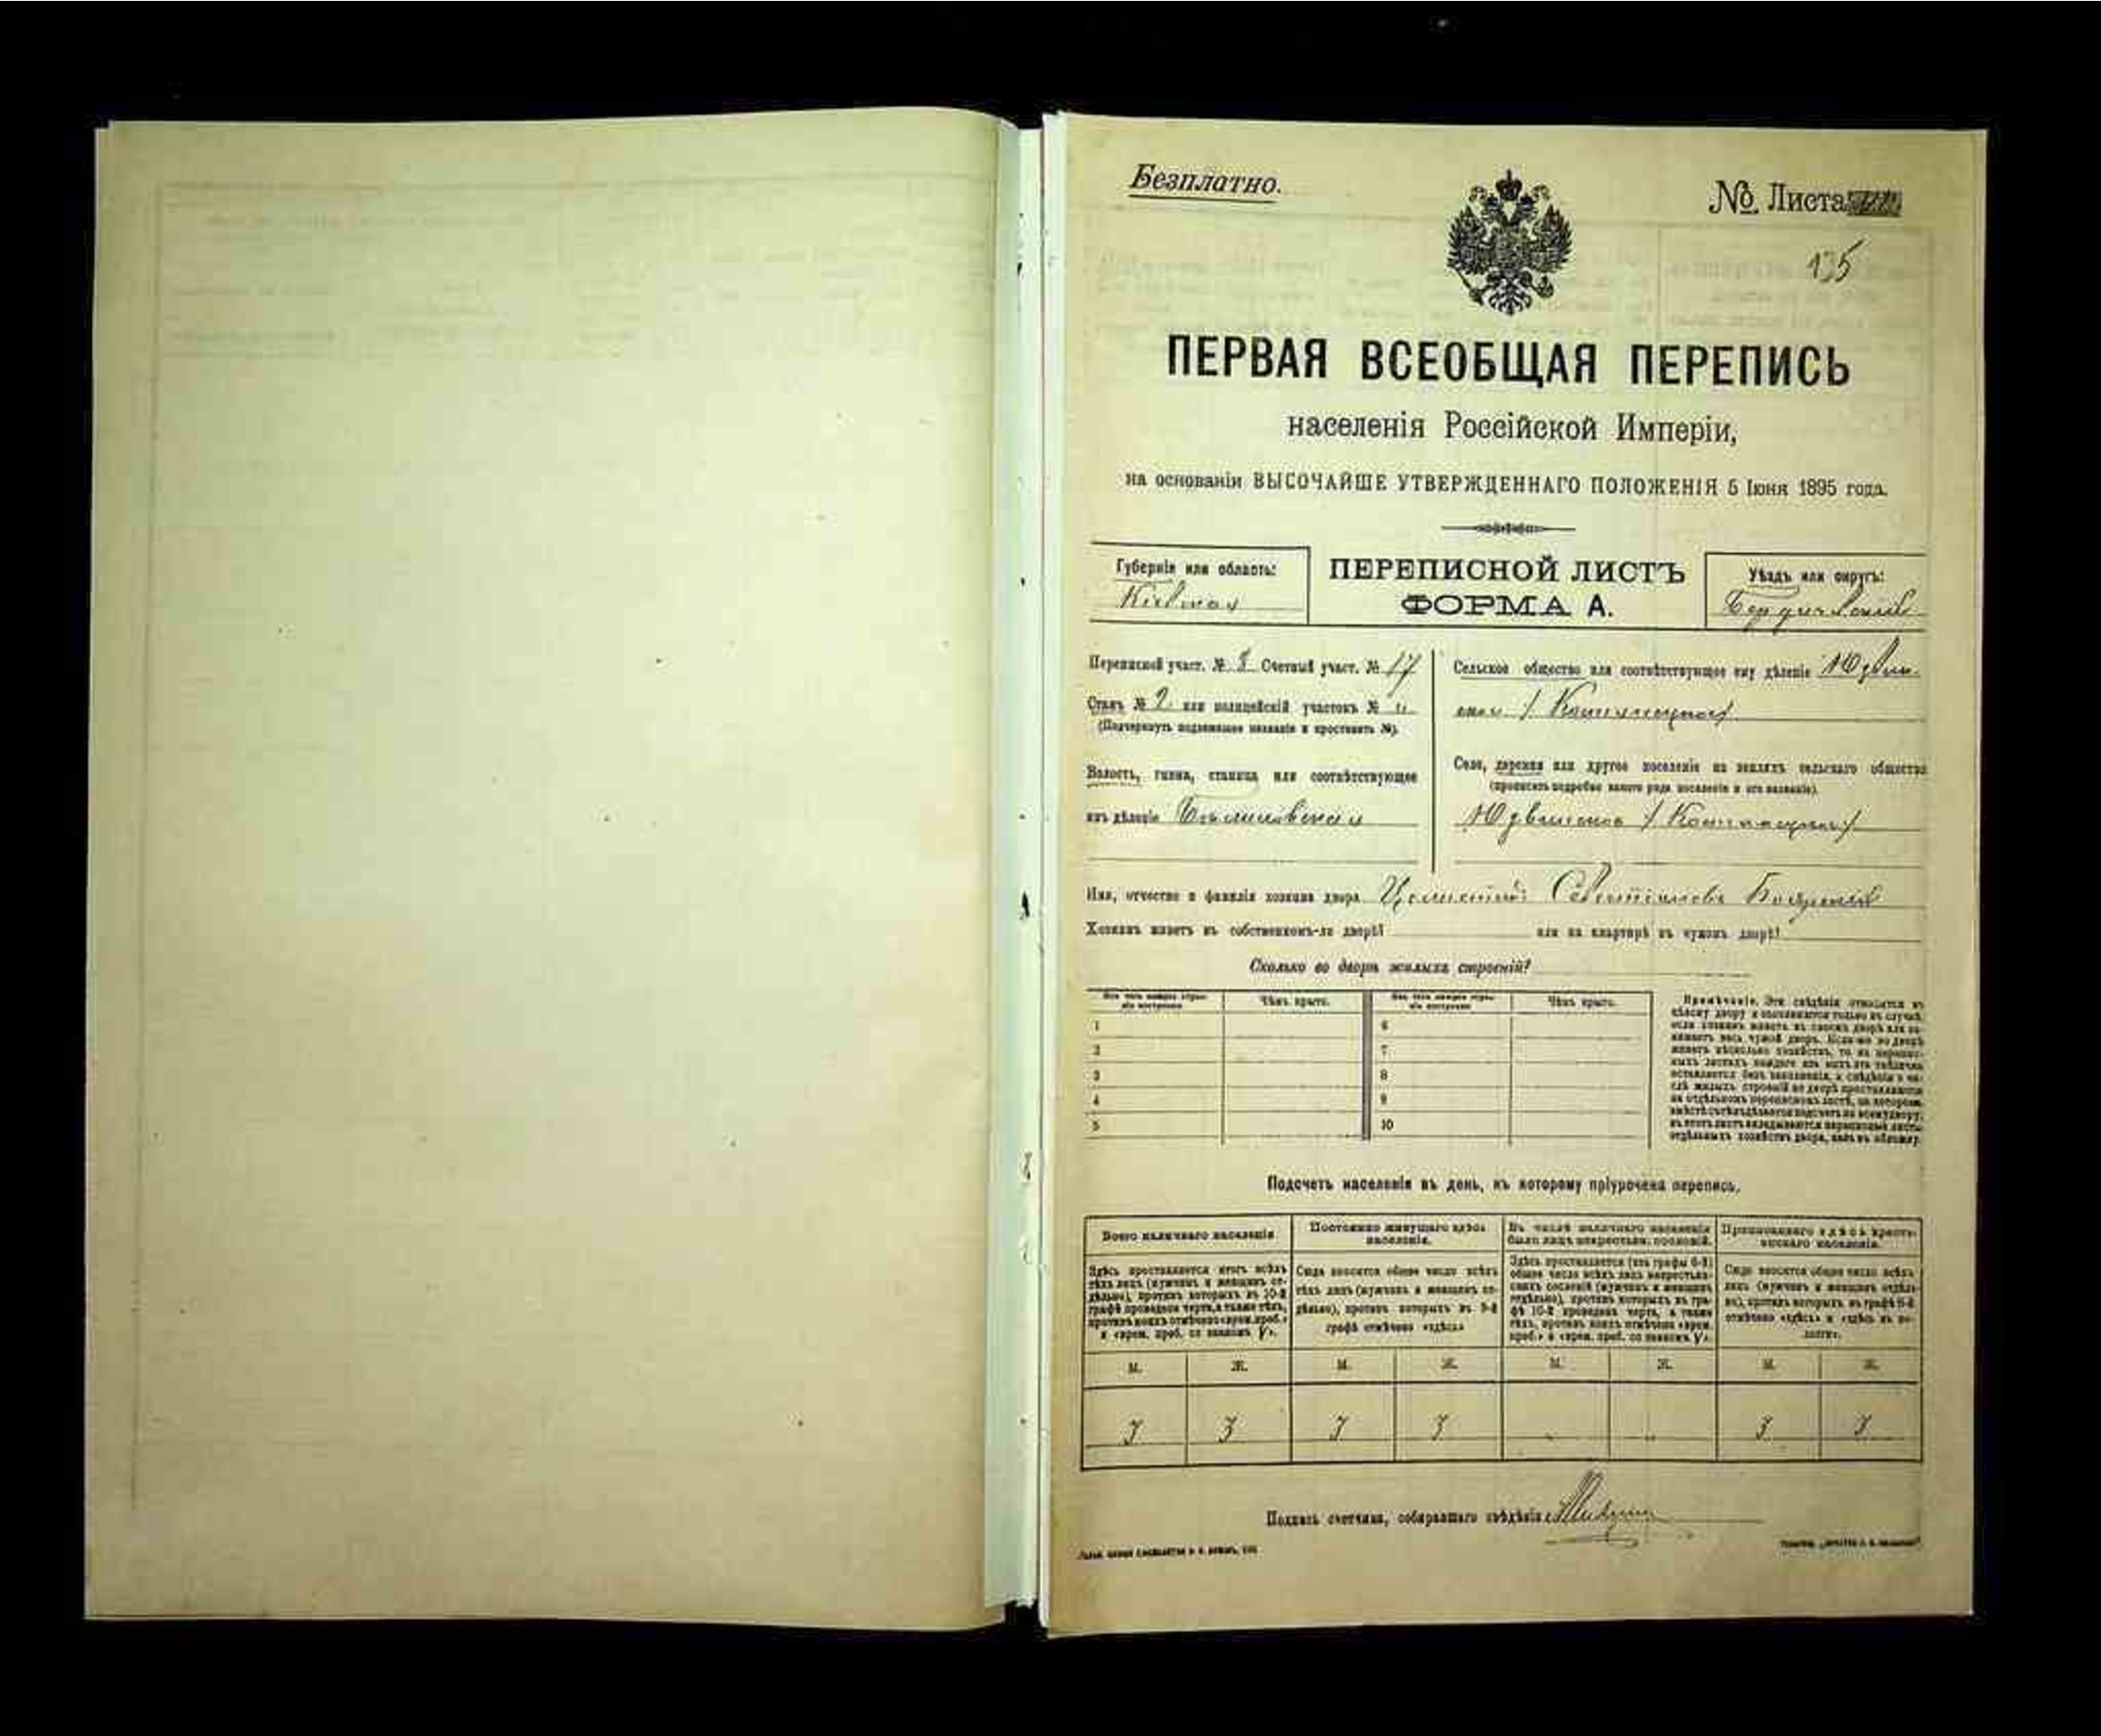 Безплатно.
№ Листа
135
ПЕРВАЯ ВСЕОБЩАЯ ПЕРЕПИСЬ
населенія Россійской Имперіи,
на основаніи ВЫСОЧАЙШЕ УТВЕРЖДЕННАГО ПОЛОЖЕНІЯ 5 Іюня 1895 года.
Губернія или область:
Кіевская
ПЕРЕПИСНОЙ ЛИСТЪ
ФОРМА А.
Уѣздъ или округъ:
Бердичевскій
Переписной участ. № 8 Счетный участ. № 17
Станъ № 2 или полицейскій участокъ №
(Подчеркнуть подлежащее названіе и проставить №).
Волость, гмина, станица или соотвѣтствующее
имъ дѣленіе
Сельское общество или соотвѣтствующее ему дѣленіе
Село, деревня или другое поселеніе на земляхъ сельскаго общества
(прописать подробно какого рода поселеніе и его названіе).
Имя, отчество и фамилія хозяина двора
Хозяинъ живетъ въ собственномъ-ли дворѣ?
или на квартирѣ въ чужомъ дворѣ?
Сколько во дворѣ жилыхъ строеній?
Изъ чего каждое строеніе построено
Чѣмъ крыто.
Изъ чего каждое строеніе построено
Чѣмъ крыто.
1
2
3
4
5
6
7
8
9
10
Примѣчаніе. Эти свѣдѣнія относятся къ
цѣлому двору и заполняются только въ случаѣ,
если хозяинъ живетъ въ своемъ дворѣ или занимаетъ
весь чужой дворъ. Если-же во дворѣ
живетъ нѣсколько хозяйствъ, то на переписныхъ
листахъ каждаго изъ нихъ эта табличка
оставляется безъ заполненія, а свѣдѣнія о числѣ
жилыхъ строеній во дворѣ проставляются
на отдѣльномъ переписномъ листѣ, на которомъ
отдѣльныхъ хозяйствъ двора, какъ въ обложку.
Подсчетъ населенія въ день, къ которому пріурочена перепись.
Всего наличнаго населенія
Здѣсь проставляется итогъ всѣхъ
тѣхъ лицъ (мужчинъ и женщинъ отдѣльно),
противъ которыхъ въ 10-й
графѣ проведена черта, а также тѣхъ,
противъ коихъ отмѣчено «врем. преб.»
и «врем. преб. со знакомъ V».
Постоянно живущаго здѣсь
населенія.
Сюда вносится общее число всѣхъ
тѣхъ лицъ (мужчинъ и женщинъ отдѣльно),
противъ которыхъ въ 9-й
графѣ отмѣчено «здѣсь»
Въ числѣ наличнаго населенія
было лицъ некрестьян. сословій.
Здѣсь проставляется (изъ графы 6-й)
общее число всѣхъ лицъ некрестьянскихъ
сословій (мужчинъ и женщинъ
отдѣльно), противъ которыхъ въ графѣ
10-й проведена черта, а также
тѣхъ, противъ коихъ отмѣчено «врем.
преб.» и «врем. преб. со знакомъ V».
Приписаннаго здѣсь крестьянскаго
населенія.
Сюда вносится общее число всѣхъ
лицъ (мужчинъ и женщинъ отдѣльно),
противъ которыхъ въ графѣ 8-й
отмѣчено «здѣсь» и «здѣсь въ волости».
М. Ж. М. Ж. М. Ж. М. Ж.
3 3 3 3 3 3
Подпись счетчика, собиравшаго свѣдѣнія